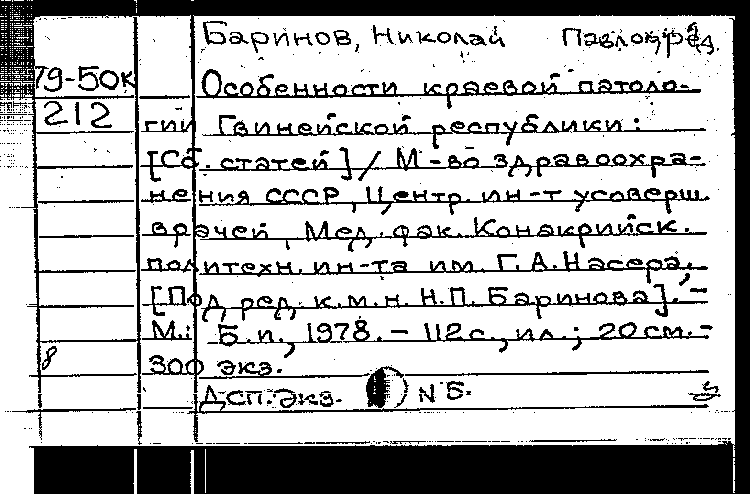 Баринов, Николай Павлов, ред.
79-50к Особенности краевой патоло-
212 гии Гвинейской республики:
[Сб. статей] / М-во здравоохра-
нения СССР, Центр. ин-т усоверш.
врачей, Мед. фак. Конакрийск.
политехн. ин-та им. Г. А. Насера;
[Под ред. к.м.н. Н.П. Баринова]. -
М.: Б.и., 1978. - 112 с., ил.; 20 см. -
8 300 экз.
ДСП. Экз. N 5.